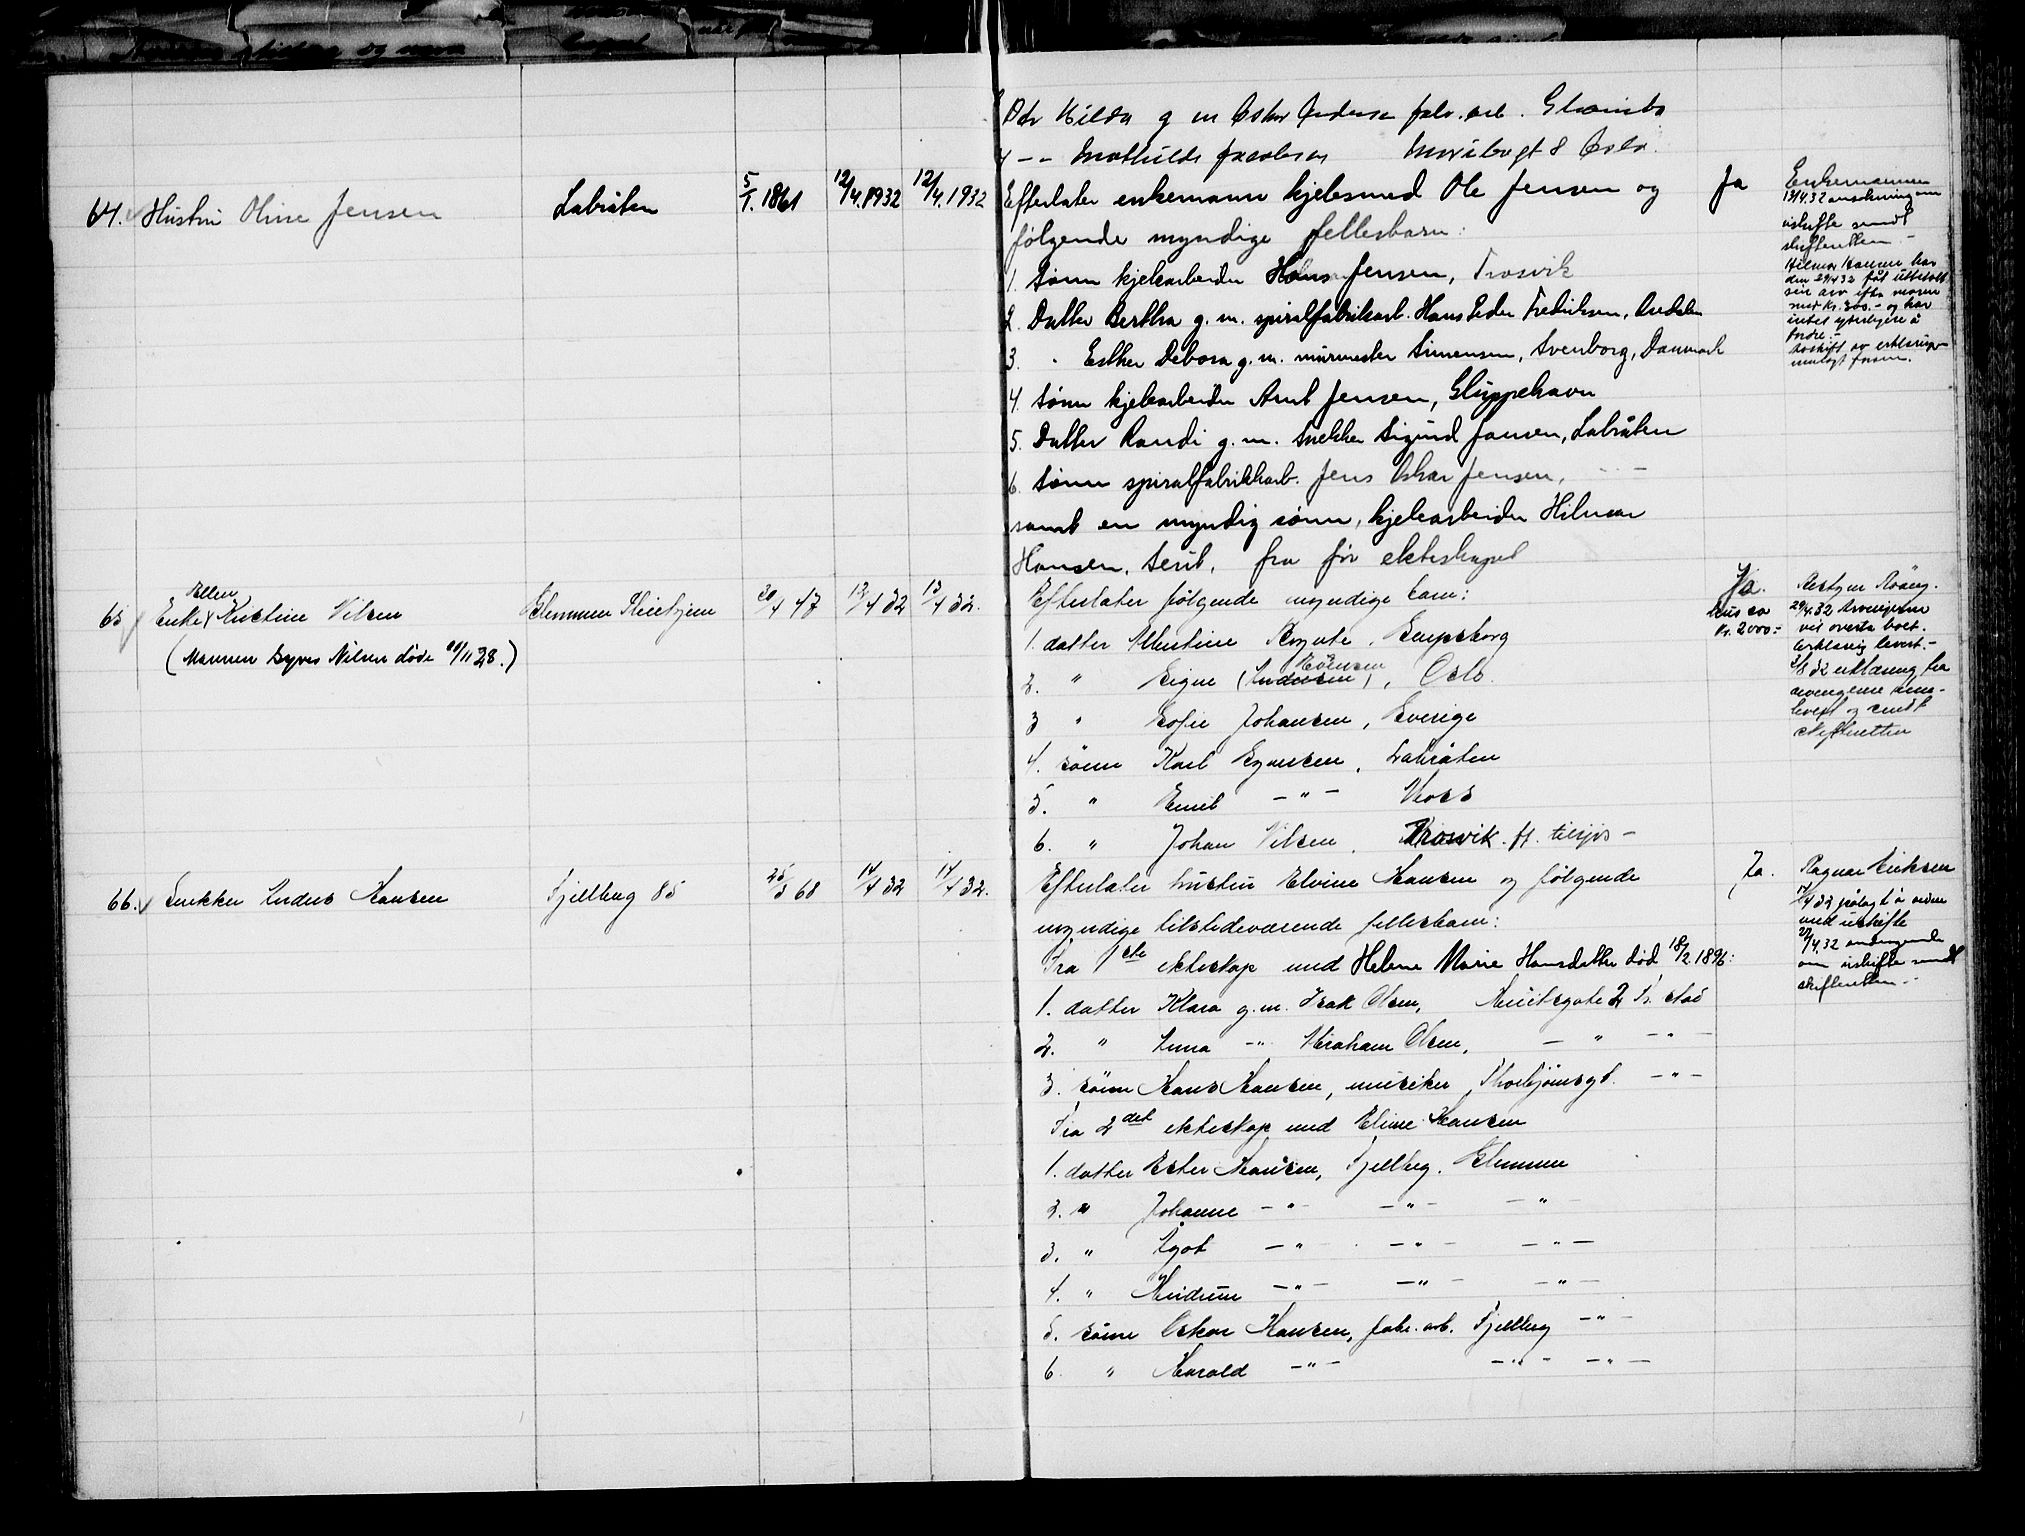 Dtr Hilda g m Oskar Andersen fabr. arb. Glombo
4 - - Mathilde Jacobsen Oslo.
64. Hustru Oline Jensen Labråten 5/1. 1861 12/4. 1932 12/4. 1932 Efterlater enkemann kjelesmed Ole Jensen og Ja
følgende myndige fellesbarn:
1. Sønn kjelearbeider Hans Jensen, Trosvik
2. Datter Bertha g. m. spiralfabrikarb. Hans Peder Fredriksen,
3. " Esther Debora g. m. murmester Simensen, Svenborg, Danmark
4. Sønn kjelearbeider Arnt Jensen, Gluppehavn
5. Datter Randi g. m. snekker Sigurd Jansen, Labråten
6. Sønn spiralfabrikkarb. Jens Oskar Jensen, - " -
samt en myndig sønn, kjelearbeider Hilmar
Hansen, fra før ekteskapet
Enkemannen
13/4.32 ansøkning om
uskifte sendt
skifteretten -
Hilmar Hansen har
den 29/4 32 fåt utbetalt
sin arv efter moren
med kr. 300.- og har
intet yterligere å
fordre.-
Avskrift av erklæring
65 Enke Ellen Kristine Nilsen Glemmen Pleiehjem 20/4 47 13/4 32 13/4 32. Efterlater følgende myndige barn: Ja.
(Mannen Syver Nilsen døde 11 28.)
1. datter Albertine Sarpsborg
2. " Signe (Andersen) Evensen, Oslo.
3 " Sofie Johansen, Sverige
4. sønn Karl Syversen, Labråten
5. " Emil - " - Moss
6. " Johan Nilsen, Trosvik. ft. tilsjøs -
hus ca
kr. 2000:-
Bestyrer
29/4.32 Arvingene
vil overta boet.
Erklæring levert.-
32 erklæring fra
arvingene
levert og sendt
skifteretten
66. Snekker Anders Hansen Fjellberg 85 25/3 68 14/4 32 14/4 32. Efterlater hustru Elvine Hansen og følgende Ja.
myndige tilstedeværende fellesbarn:
Fra 1ste ekteskap med Helene Marie Hansdatter død 18/2 1896:
1. datter Klara g. m. Isak Olsen, 2 Fr. stad
2. " Anna - " - Abraham Olsen, - " - - " -
3. sønn Hans Hansen, musiker, Thorbjørnsgt. - " -
Fra 2det ekteskap med Elvine Hansen
1. datter Ester Hansen, Fjellberg. Glemmen
2. " Johanne - " - - " - - " -
3. " Ågot - " - - " - - " -
4. " Gudrun - " - - " - - " -
5. sønn Oskar Hansen, fabr. arb. Fjellberg - " -
6 " Harald - " - - " - - " -
Ragnar Eriksen
14/4 32 pålagt å ordne
med uskifte
27/4.32 andragende
om uskifte sendt
skifteretten.-